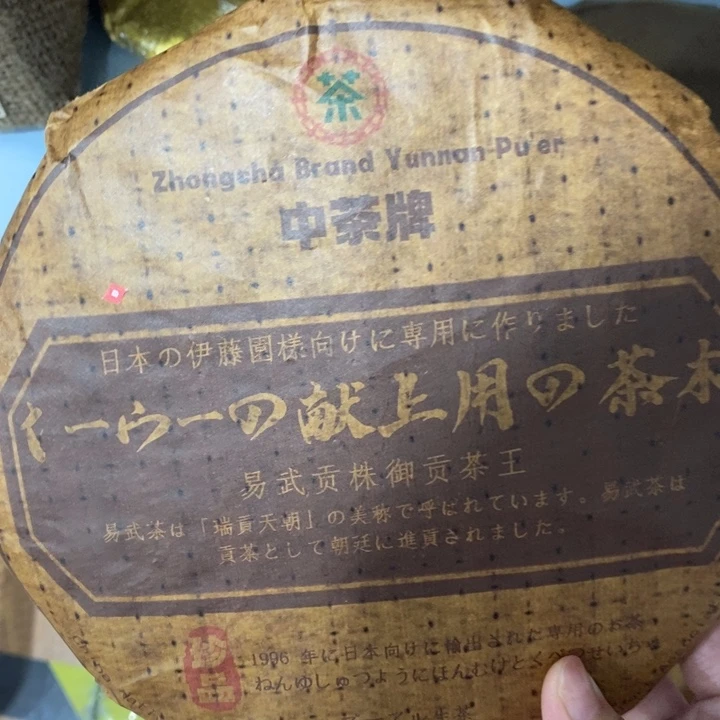 茶
Zhongcha Brand Yunnan Pu'er
中茶牌
日本の伊藤園様向けに専用に作りました
イーウーの献上用の茶木
易武贡株御贡茶王
易武茶は「瑞貢天朝」の美称で呼ばれています。易武茶は
貢茶として朝廷に進貢されました。
珍品
1996 年に日本向けに輸出された専用のお茶
ねんゆしゅつようにほんむけとくべつせいちゃ